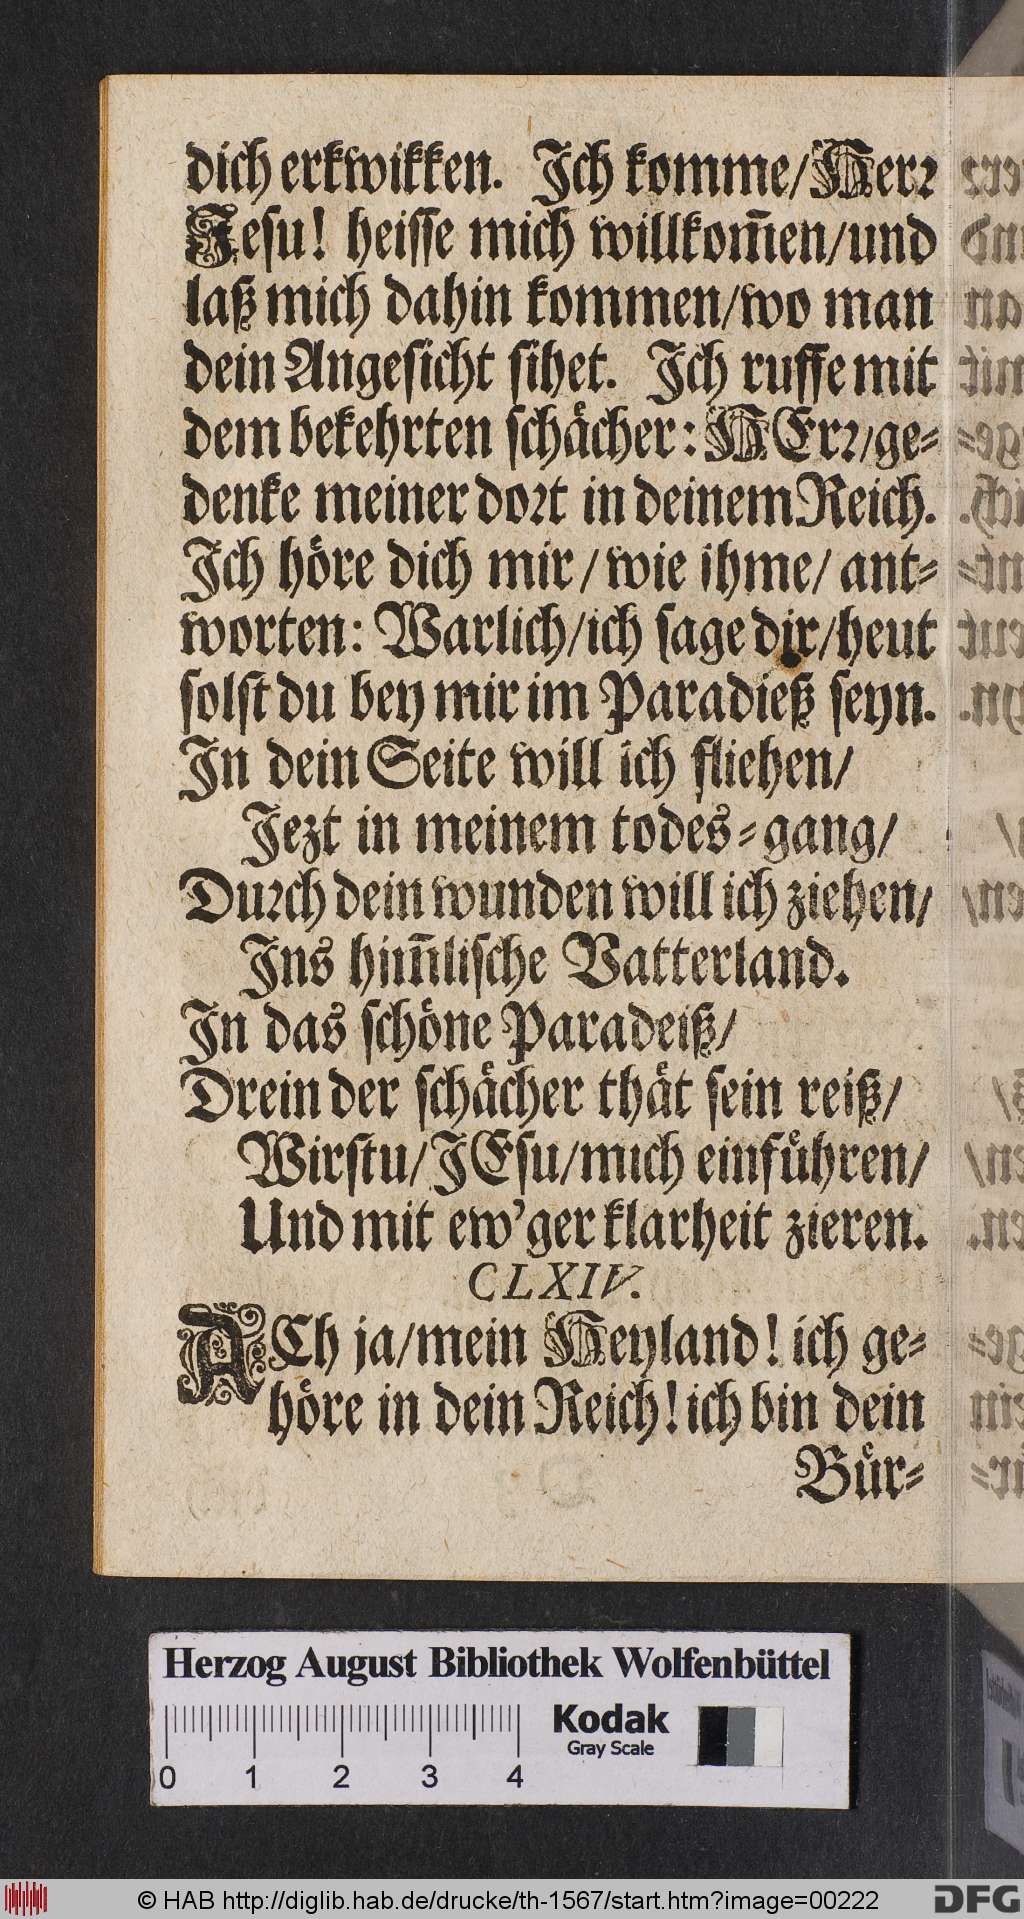 dich erkwikken. Ich komme/ Herꝛ
Jesu! heisse mich willkom̃en/und
laß mich dahin kommen/wo man
dein Angesicht sihet. Ich ruffe mit
dem bekehrten schaͤcher: HErꝛ/ge⸗
denke meiner doꝛt in deinem Reich.
Ich hoͤre dich mir/ wie ihme/ ant⸗
worten: Warlich/ich sage dir/heut
solst du bey mir im Paradieß seyn.
In dein Seite will ich fliehen/
Jezt in meinem todes⸗gang/
Duꝛch dein wunden will ich ziehen/
Ins him̃lische Vatterland.
In das schoͤne Paradeiß/
Drein der schaͤcher thaͤt sein reiß/
Wirstu/ JEsu/mich einfuͤhren/
Und mit ew'ger klarheit zieren.
CLXIV.
ACh ja/mein Heyland! ich ge⸗
hoͤre in dein Reich! ich bin dein
Buͤr⸗
Herzog August Bibliothek Wolfenbüttel
Kodak
Gray Scale
0 1 2 3 4
© HAB http://diglib.hab.de/drucke/th-1567/start.htm?image=00222
DFG